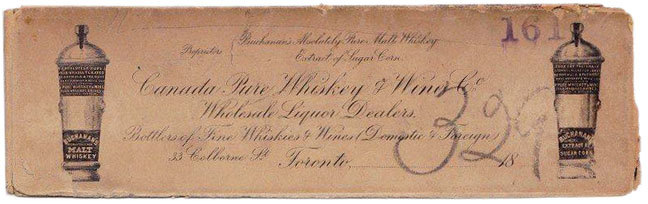 Proprietors
Buchanan's Absolutely Pure Malt Whiskey
Extract of Sugar Corn.
161
Canada Pure Whiskey & Wine Co
Wholesale Liquor Dealers.
Bottlers of Fine Whiskies & Wines (Domestic & Foreign)
33 Colborne St. Toronto 18
32
BUCHANAN'S
MALT
WHISKEY
BUCHANAN'S
EXTRACT OF
SUGAR CORN